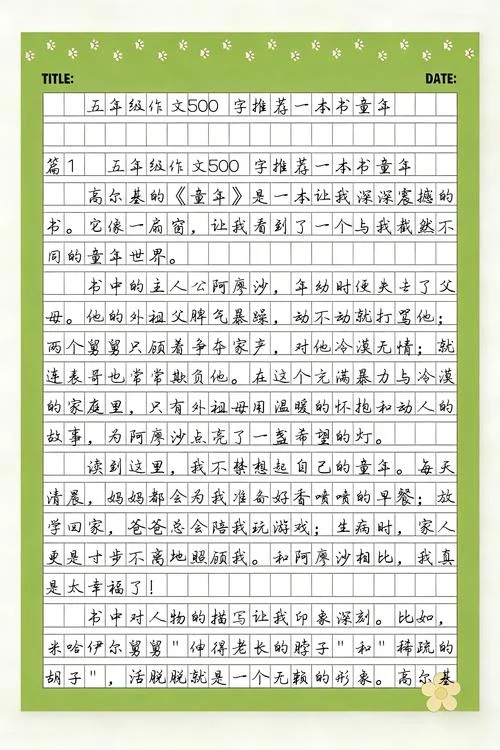 TITLE: DATE:
五年级作文500 字推荐一本书童年
篇1 五年级作文500 字推荐一本书童年
高尔基的《童年》是一本让我深深震撼的
书。它像一扇窗，让我看到了一个与我截然不
同的童年世界。
书中的主人公阿廖沙，年幼时便失去了父
母。他的外祖父脾气暴躁，动不动就打骂他；
两个舅舅只顾着争夺家产，对他冷漠无情；就
连表哥也常常欺负他。在这个充满暴力与冷漠
的家庭里，只有外祖母用温暖的怀抱和动人的
故事，为阿廖沙点亮了一盏希望的灯。
读到这里，我不禁想起自己的童年。每天
清晨，妈妈都会为我准备好香喷喷的早餐；放
学回家，爸爸总会陪我玩游戏；生病时，家人
更是寸步不离地照顾我。和阿廖沙相比，我真
是太幸福了！
书中对人物的描写让我印象深刻。比如，
米哈伊尔舅舅"伸得老长的脖子"和"稀疏的
胡子"，活脱脱就是一个无赖的形象。高尔基